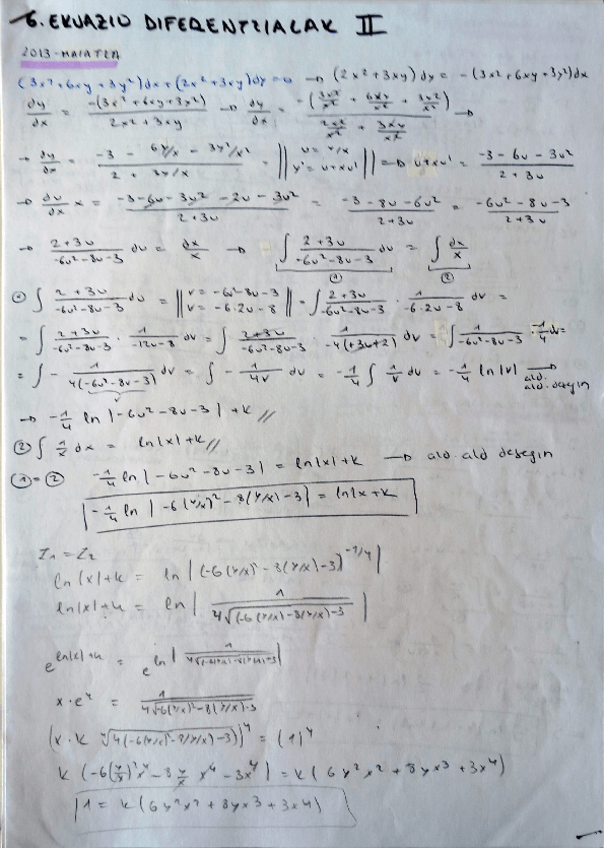 6. EKUAZIO DIFERENTZIALAK II
2013-MAIATZA
(3x²+6xy+3y²)dx+(2x²+3xy)dy=0 → (2x²+3xy)dy = -(3x²+6xy+3y²)dx
dy/dx = -(3x²+6xy+3y²)/(2x²+3xy) → dy/dx = -(3x²/x² + 6xy/x² + 3y²/x²)/(2x²/x² + 3xy/x²) →
→ dy/dx = (-3 - 6y/x - 3y²/x²)/(2 + 3y/x) = || u=y/x y'=u+xu' || → u+xu' = (-3-6u-3u²)/(2+3u)
→ du/dx x = (-3-6u-3u²-2u-3u²)/(2+3u) = (-3-8u-6u²)/(2+3u) = (-6u²-8u-3)/(2+3u)
→ (2+3u)/(-6u²-8u-3) du = dx/x → ∫ (2+3u)/(-6u²-8u-3) du = ∫ dx/x
① ②
① ∫ (2+3u)/(-6u²-8u-3) du = || v=-6u²-8u-3 v=-6·2u-8 || = ∫ (2+3u)/(-6u²-8u-3) · 1/(-6·2u-8) dv =
= ∫ (2+3u)/(-6u²-8u-3) · 1/(-12u-8) dv = ∫ (2+3u)/(-6u²-8u-3) · 1/(-4(+3u+2)) dv = ∫ 1/(-6u²-8u-3) · -1/4 dv =
= ∫ - 1/(4(-6u²-8u-3)) dv = ∫ - 1/(4v) dv = -1/4 ∫ 1/v dv = -1/4 ln|v| → ald. ald. desegin
→ -1/4 ln |-6u²-8u-3| + k //
② ∫ 1/x dx = ln|x|+k //
①=② -1/4 ln |-6u²-8u-3| = ln|x|+k → ald. ald desegin
-1/4 ln |-6(y/x)²-8(y/x)-3| = ln|x+k
I₁=I₂
ln|x|+k = ln |(-6(y/x)²-8(y/x)-3)^-1/4|
ln|x|+k = ln | 1/(4√(-6(y/x)-8(y/x)-3)) |
e^(ln|x|+k) = e^(ln| 1/(4√(-6(y/x)-8(y/x)-3)) |)
x·e^k = 1/(4√(-6(y/x)²-8(y/x)-3))
(x·k ∜(4(-6(y/x)²-8(y/x)-3)))⁴ = (1)⁴
k(-6(y/x)²x⁴ - 8 y/x x⁴ - 3x⁴) = k(6y²x²+8yx³+3x⁴)
1 = k(6y²x²+8yx³+3x⁴)